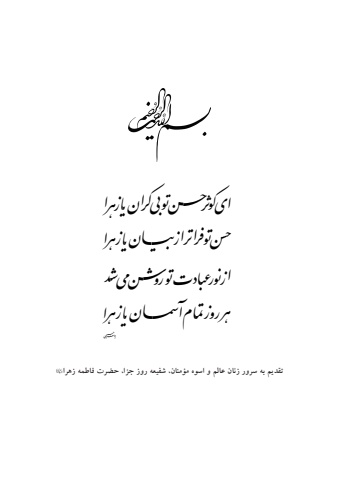 بسم الله الرحمن الرحیم
ای کوثر حسن تو بی کران یا زهرا
حسن تو فراتر از بیان یا زهرا
از نور عبادت تو روشن می شد
هر روز تمام آسمان یا زهرا
تقدیم به سرور زنان عالم و اسوه مؤمنان، شفیعه روز جزا، حضرت فاطمه زهرا